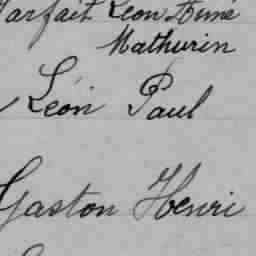 Parfait Léon Aimé
Mathurin
Léon Paul
Gaston Henri